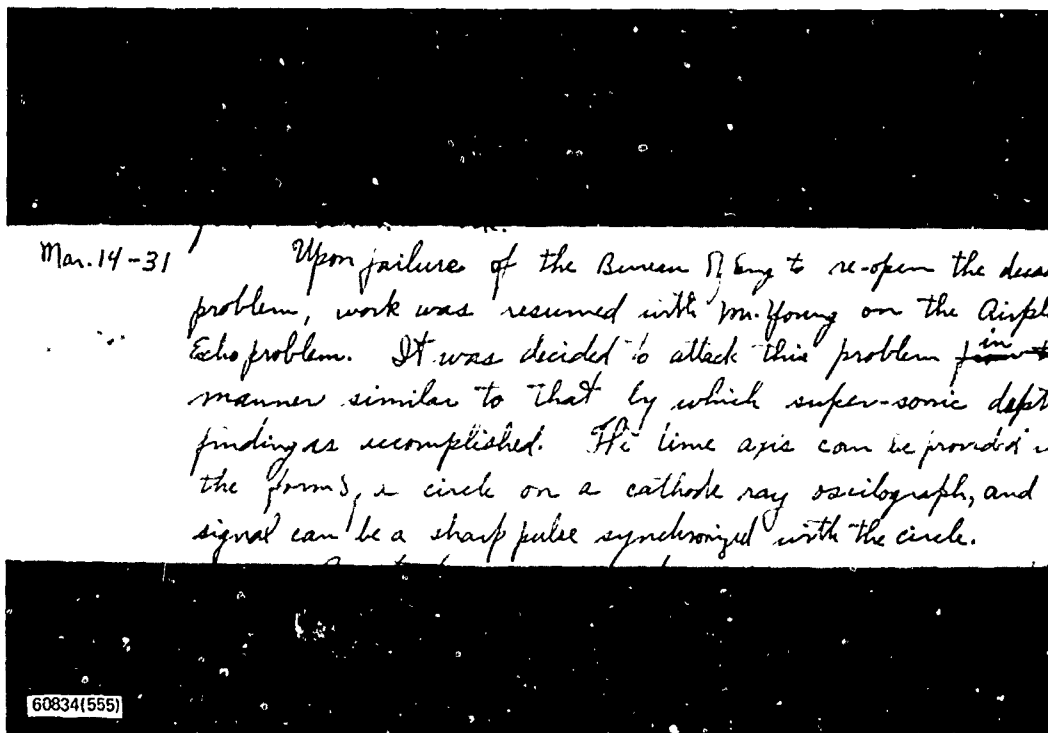 Mar. 14 - 31
Upon failure of the Bureau of Eng to re-open the
problem, work was resumed with Mr. Young on the Airpl
Echo problem. It was decided to attack this problem in
manner similar to that by which super-sonic dept
finding is accomplished. The time axis can be provided
the form of a circle on a cathode ray oscilograph, and
signal can be a sharp pulse synchronized with the circle.
60834(555)